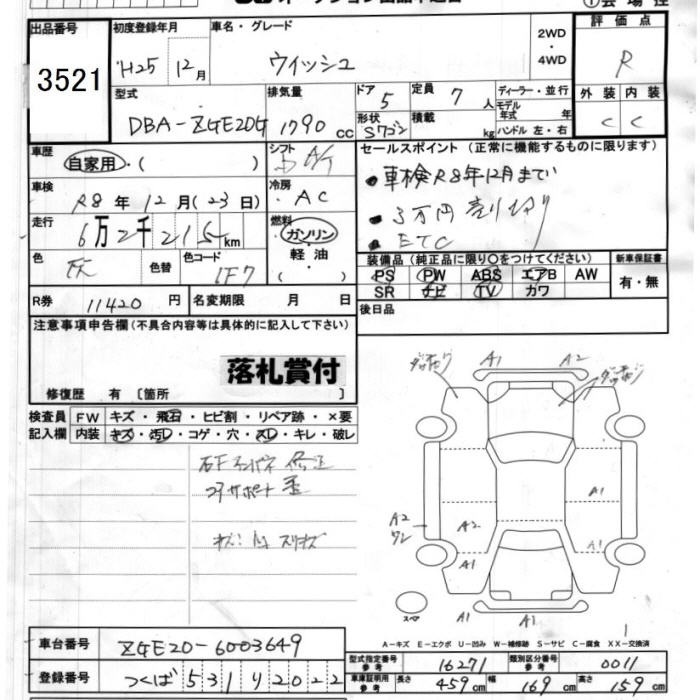 出品番号 初度登録年月 車名・グレード 2WD・4WD 評価点
3521 H25 12月 ウィッシュ R
型式 排気量 ドア 5 定員 7 人 ディーラー・並行 外装 内装
DBA-ZGE20G 1790 cc 形状 Sワゴン 積載 kg モデル年式 年 ハンドル 左・右 C C
車歴 自家用・( ) シフト A/T セールスポイント (正常に機能するものに限ります)
車検 R8年12月(23日) 冷房 AC ・車検R8年12月まで
走行 6万2千215km 燃料 ガソリン・軽油・( ) ・3万円売り切り
・ETC
色 灰 色替 色コード 1F7 装備品 (純正品に限り○をつけてください) 新車保証書
PS PW ABS エアB AW 有・無
R券 11420円 名変期限 月 日 SR ナビ TV カワ
注意事項申告欄 (不具合内容等は具体的に記入して下さい) 後日品
落札賞付
修復歴 有 [箇所 ]
検査員記入欄 FW キズ・飛石・ヒビ割・リペア跡・×要
内装 キズ・汚レ・コゲ・穴・スレ・キレ・破レ
コアサポート
A1 A2
A1
A2 A2 A1
A1
A1 A1
スペア
A-キズ E-エクボ U-凹み W-補修跡 S-サビ C-腐食 XX-交換済
車台番号 ZGE20-6003649
型式指定番号 参考 16271 類別区分番号 参考 0011
登録番号 つくば 531 り 2022 車庫証明用 参考 長さ 459cm 幅 169cm 高さ 159cm